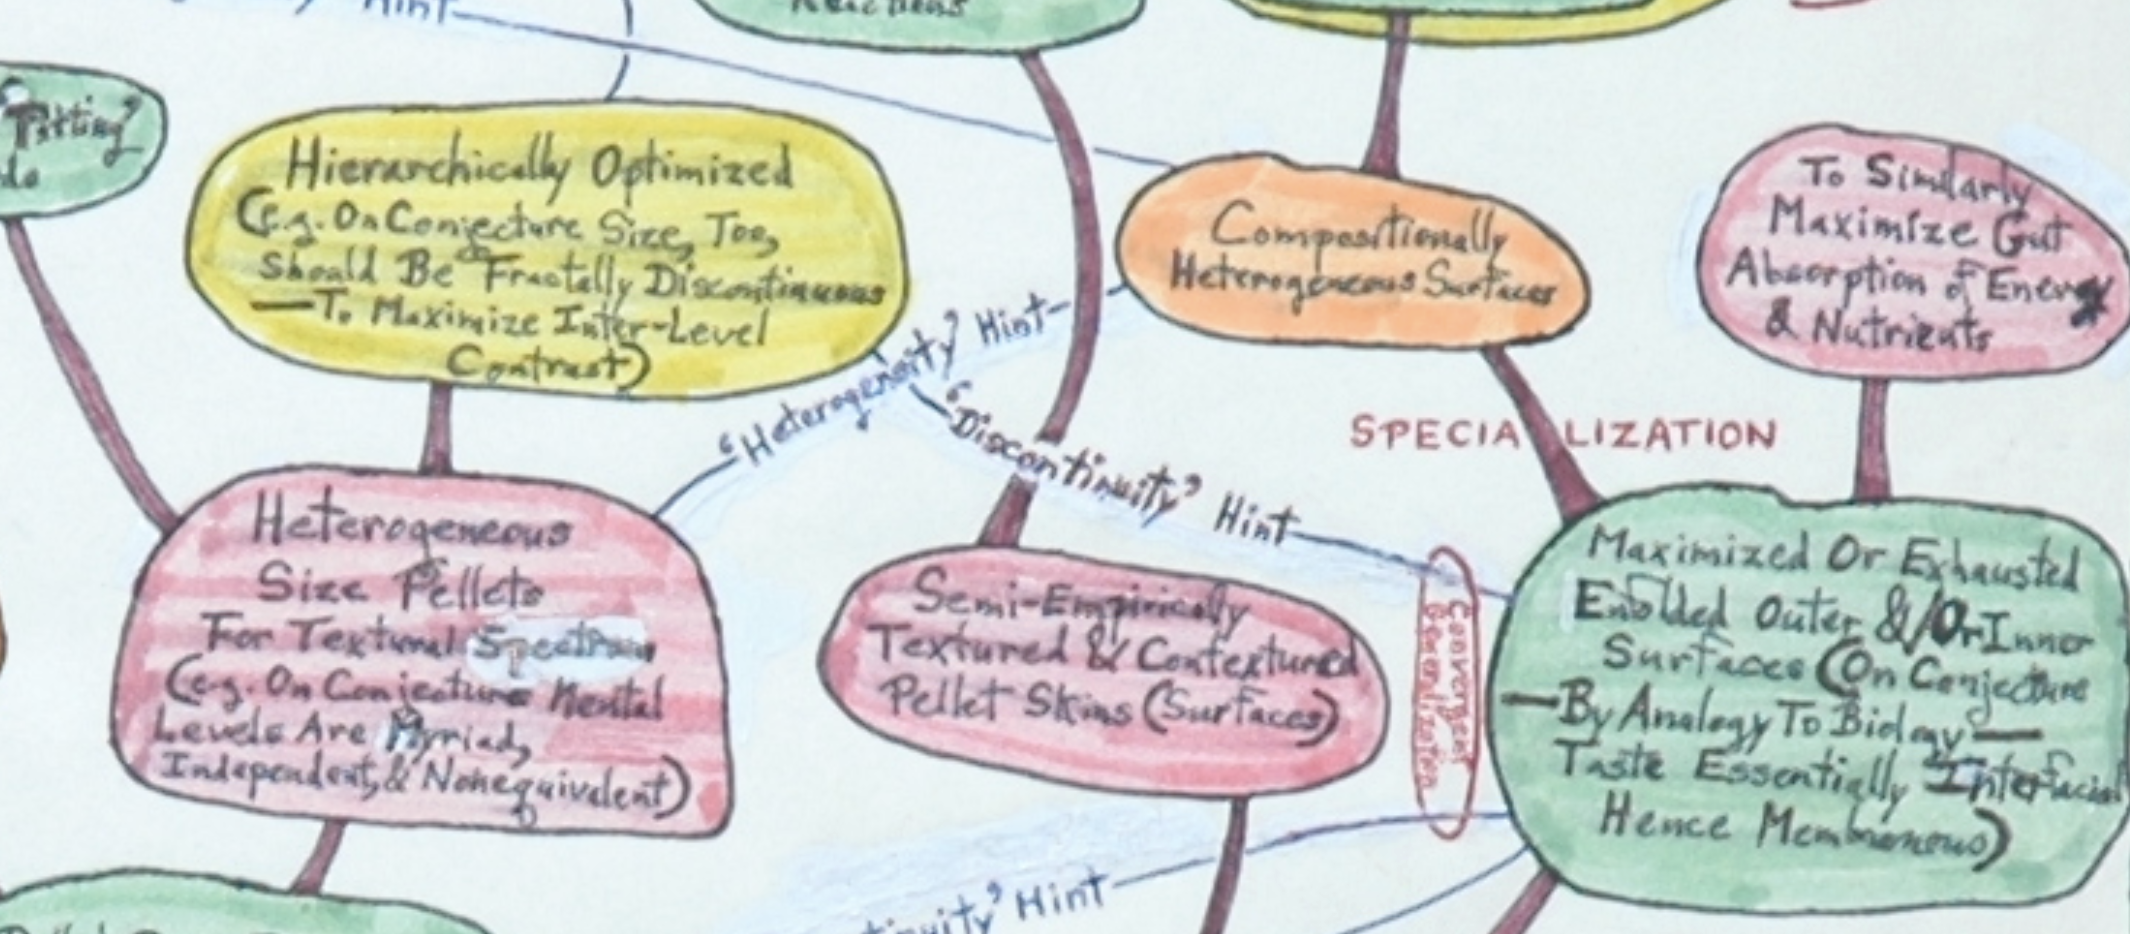 Hint
Reactions
"Fitting"
Hierarchically Optimized
(e.g. On Conjecture Size, Too,
Should Be Fractally Discontinuous
—To Maximize Inter-Level
Contrast)
Compositionally
Heterogeneous Surfaces
To Similarly
Maximize Gut
Absorption of Energy
& Nutrients
'Heterogeneity' Hint
'Discontinuity' Hint
SPECIALIZATION
Heterogeneous
Size Pellets
For Textural Spectrum
(e.g. On Conjecture Mental
Levels Are Myriad,
Independent, & Nonequivalent)
Semi-Empirically
Textured & Contextured
Pellet Skins (Surfaces)
Convergent
Generalization
Maximized Or Exhausted
Enfolded Outer &/Or Inner
Surfaces (On Conjecture
—By Analogy To Biology—
Taste Essentially Interfacial
Hence Membranous)
tinuity' Hint